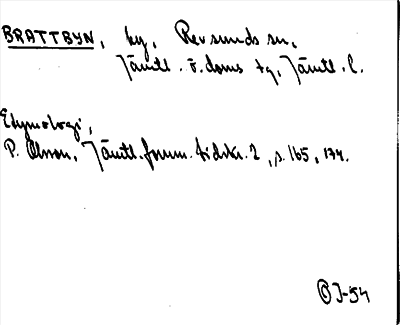 BRATTBYN, by, Revsunds sn,
Jämtl. ö. doms tg, Jämtl. l.
Etymologi,
P. Olsson, Jämtl. fornm. tidskr. 2, s. 165, 174.
J-54